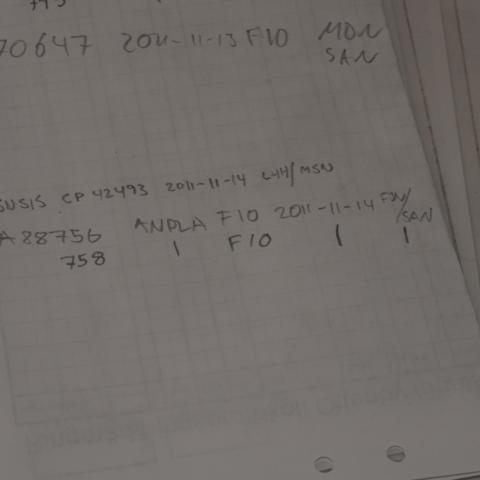 70647 2011-11-13 F10 MDN
SAN
SUSIS CP 42493 2011-11-14 L44/MSN
A 88756 ANPLA F10 2011-11-14 FDN/SAN
758 | F10 | |